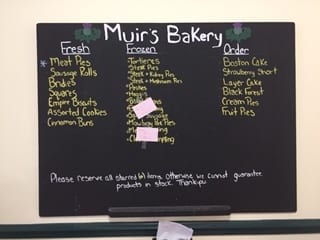 Muir's Bakery
Fresh
* Meat Pies
Sausage Rolls
Bridies
Squares
Empire Biscuits
Assorted Cookies
Cinnamon Buns
Frozen
-Tortieres
-Steak Pies
-Steak + Kidney Pies
-Steak + Mushroom Pies
-Pasties
-Haggis
Order
Boston Cake
Strawberry Short
Layer Cake
Black Forest
Cream Pies
Fruit Pies
Please reserve all starred (*) items. Otherwise we cannot guarantee
products in stock. Thank-you.